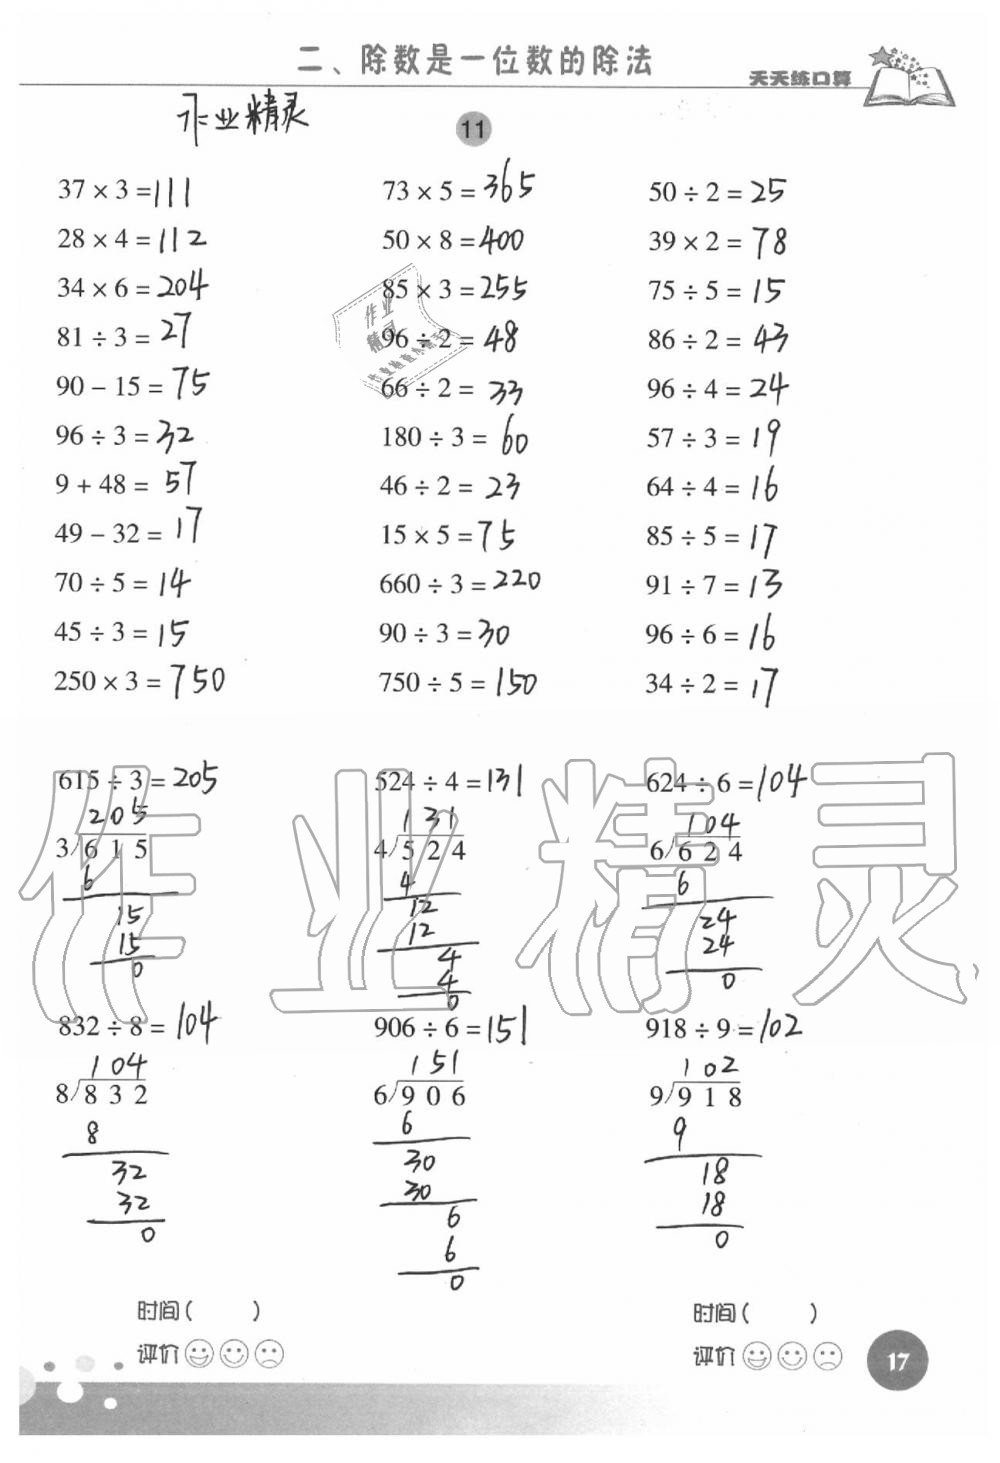 二、除数是一位数的除法
天天练口算
作业精灵
11
37 × 3 = 111
73 × 5 = 365
50 ÷ 2 = 25
28 × 4 = 112
50 × 8 = 400
39 × 2 = 78
34 × 6 = 204
85 × 3 = 255
75 ÷ 5 = 15
81 ÷ 3 = 27
96 ÷ 2 = 48
86 ÷ 2 = 43
90 − 15 = 75
66 ÷ 2 = 33
96 ÷ 4 = 24
96 ÷ 3 = 32
180 ÷ 3 = 60
57 ÷ 3 = 19
9 + 48 = 57
46 ÷ 2 = 23
64 ÷ 4 = 16
49 − 32 = 17
15 × 5 = 75
85 ÷ 5 = 17
70 ÷ 5 = 14
660 ÷ 3 = 220
91 ÷ 7 = 13
45 ÷ 3 = 15
90 ÷ 3 = 30
96 ÷ 6 = 16
250 × 3 = 750
750 ÷ 5 = 150
34 ÷ 2 = 17
作业
精灵
作业精灵
615 ÷ 3 = 205
205
3/615
6
15
15
0
524 ÷ 4 = 131
131
4/524
4
12
12
4
4
0
624 ÷ 6 = 104
104
6/624
6
24
24
0
832 ÷ 8 = 104
104
8/832
8
32
32
0
906 ÷ 6 = 151
151
6/906
6
30
30
6
6
0
918 ÷ 9 = 102
102
9/918
9
18
18
0
时间( )
评价
时间( )
评价
17